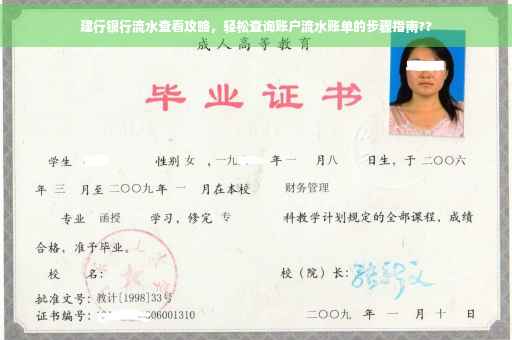 建行银行流水查看攻略，轻松查询账户流水账单的步骤指南??
成人高等教育
毕业证书
学生 性别 女 ，一九 年 一 月八 日生，于 二〇〇六
年 三 月至 二〇〇九年 一 月在本校 财务管理
专业 函授 学习，修完 专 科教学计划规定的全部课程，成绩
合格，准予毕业。
校 名： 校（院）长：
批准文号：教计[1998]33号
证书编号： 06001310 二〇〇九 年 一 月 十 日